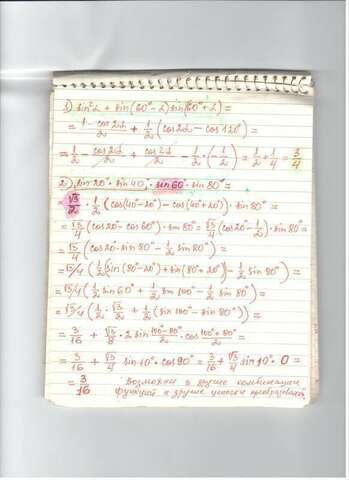 1) sin²α + sin(60°-α) sin(60°+α) =
= 1 - cos2α / 2 + 1/2 (cos2α - cos120°) =
= 1/2 - cos2α/2 + cos2α/2 - 1/2 · (-1/2) = 1/2 + 1/4 = 3/4
2) sin20° · sin40° · sin60° · sin80° =
= √3/2 · 1/2 (cos(40°-20°) - cos(40°+20°)) · sin80° =
= √3/4 (cos20° - cos60°) · sin80° = √3/4 (cos20° - 1/2) · sin80° =
= √3/4 (cos20° · sin80° - 1/2 sin80°) =
= √3/4 (1/2 (sin(80°-20°) + sin(80°+20°)) - 1/2 sin80°) =
= √3/4 (1/2 sin60° + 1/2 sin100° - 1/2 sin80°) =
= √3/4 (1/2 · √3/2 + 1/2 (sin100° - sin80°)) =
= 3/16 + √3/8 · 2 sin 100°-80°/2 · cos 100°+80°/2 =
= 3/16 + √3/4 sin10° · cos90° = 3/16 + √3/4 sin10° · 0 =
= 3/16 Возможны и другие комбинации
функций и другие цепочки преобразований